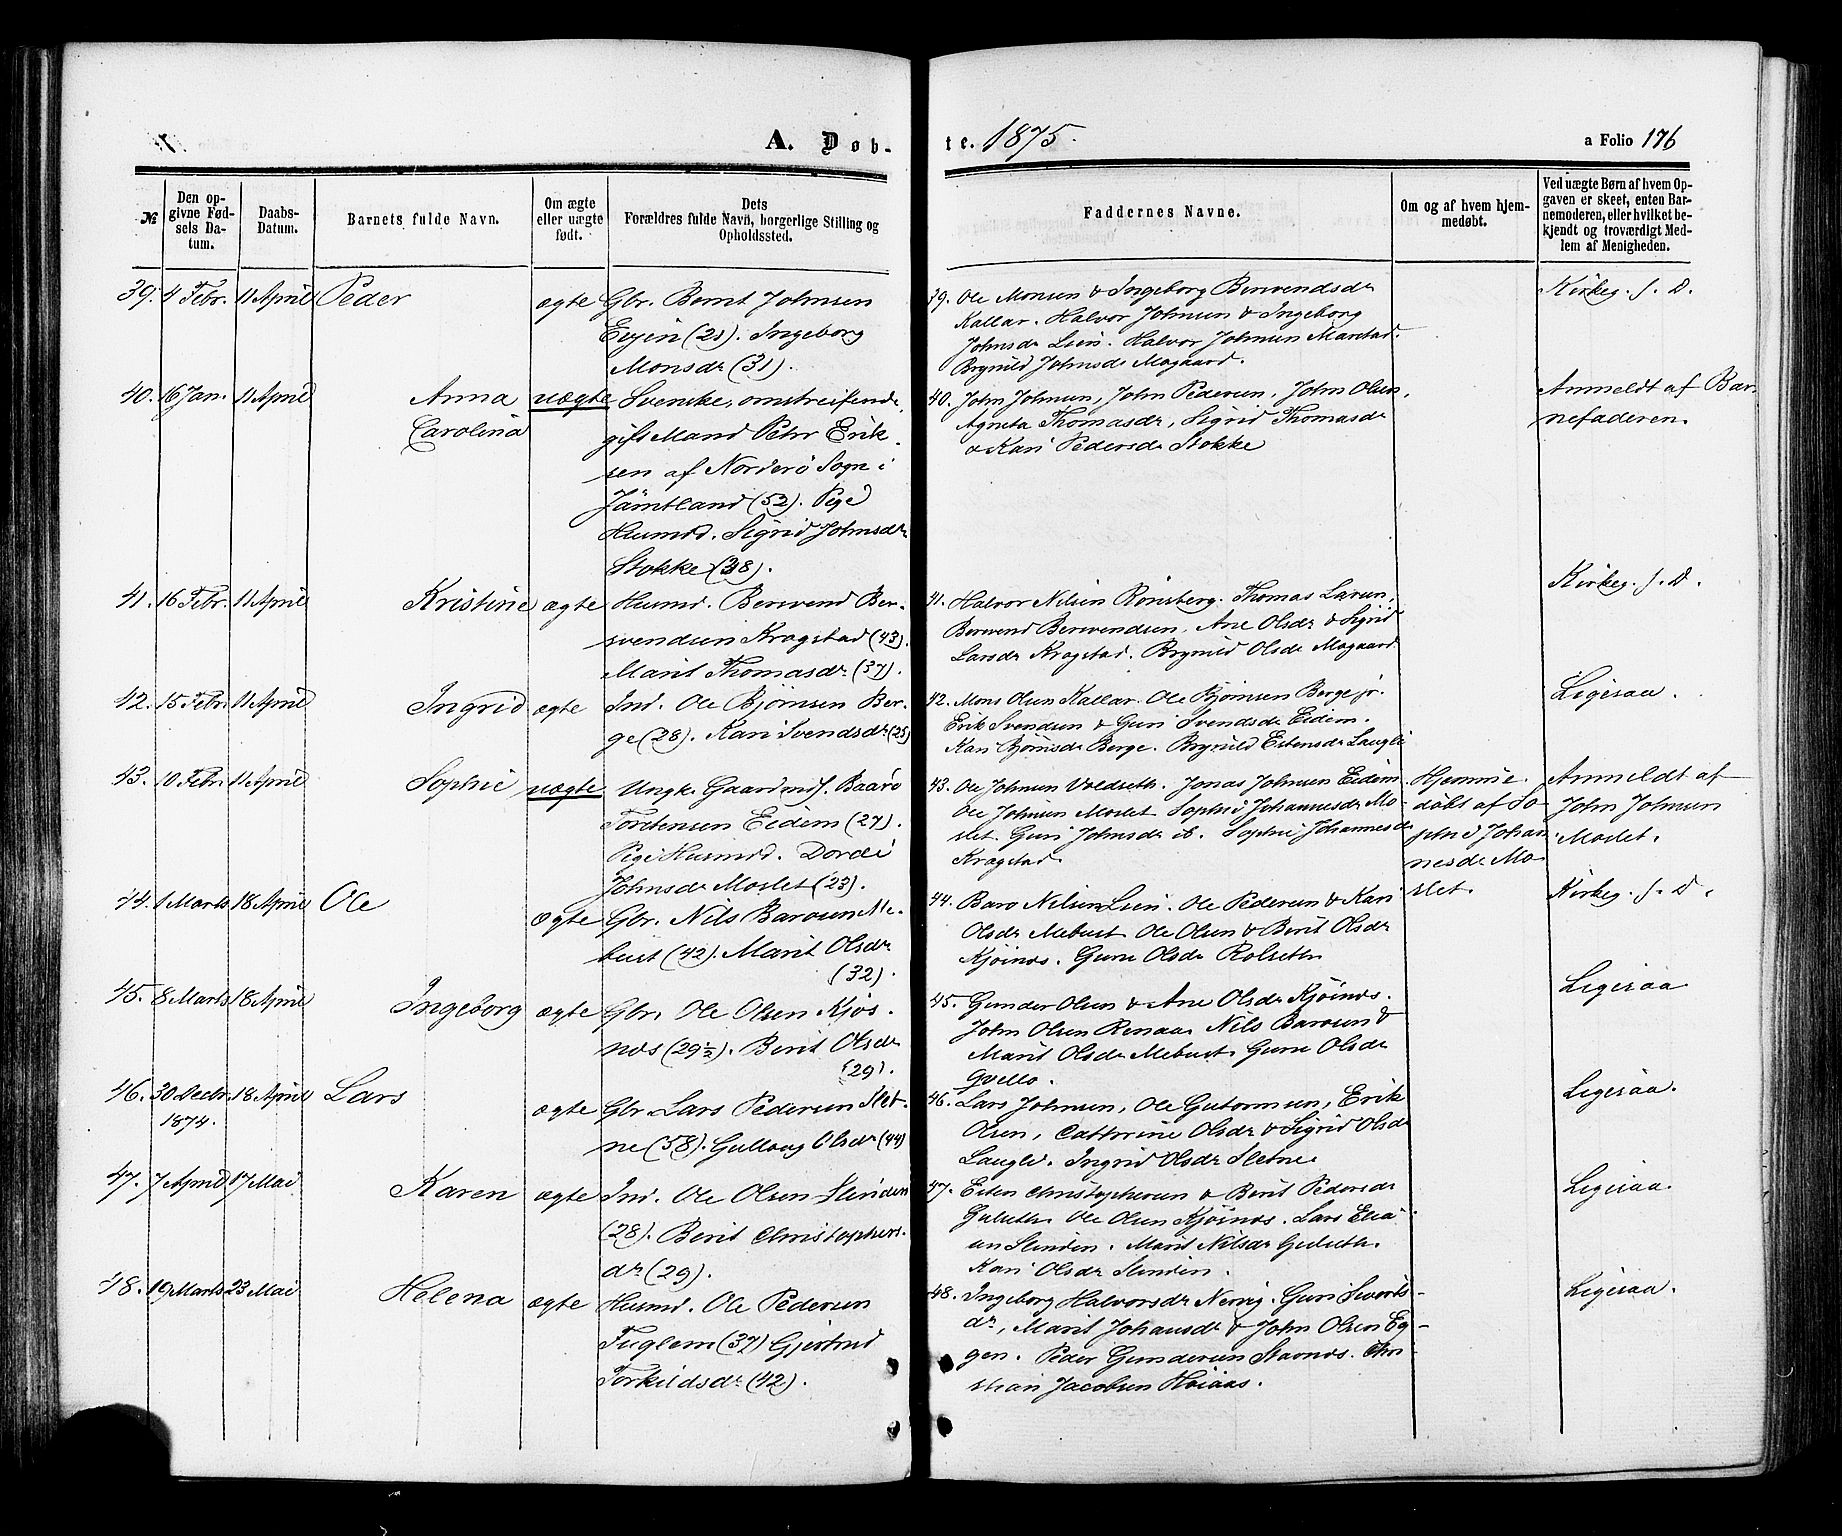 A. Døb-
te. 1875.
a Folio 176
№
Den op-
givne Fød-
sels Da-
tum.
Daabs-
Datum.
Barnets fulde Navn.
Om ægte
eller uægte
født.
Dets
Forældres fulde Navn, borgerlige Stilling og
Opholdssted.
Faddernes Navne.
Om og af hvem hjem-
medøbt.
Ved uægte Børn af hvem Op-
gaven er skeet, enten Bar-
nemoderen, eller hvilket be-
kjendt og troværdigt Med-
lem af Menigheden.
39. 4 Febr. 11 April Peder ægte Gbr. Bernt Johnsen
Evjen (21). Ingeborg
Monsdr (31).
39. Ole Monsen & Ingeborg Bersvendsdr
Kallar. Halvor Johnsen & Ingeborg
Johnsdr Lien. Halvor Johnsen Marstad.
Brynild Johnsdr Mogaard.
Kirkeg. f. D.
40. 16 Jan. 11 April Anna
Carolina
uægte Svenske, omstreifende,
gift Mand Pehr Erik-
sen af Norderö Sogn i
Jämtland (52). Pige
Husmd. Sigrid Johnsdr
Stokke (38).
40. John Johnsen, John Pedersen, John Olsen,
Agneta Thomasdr, Sigrid Thomasdr
& Kari Pedersdr Stokke
Anmeldt af Bar-
nefaderen.
41. 16 Febr. 11 April Kristine ægte Husmd. Bersvend Ber-
svendsen Kragstad (43).
Marit Thomasdr (37).
41. Halvor Nilsen Rönsberg. Thomas Larsen,
Bersvend Bersvendsen, Ane Olsdr & Sigrid
Larsdr Kragstad. Brynild Olsdr Mogaard
Kirkeg. f. D.
42. 15 Febr. 11 April Ingrid ægte Ind. Ole Bjørnsen Ber-
ge (28). Kari Svendsdr (25)
42. Mons Olsen Kallar. Ole Bjørnsen Berge jr.
Erik Svendsen & Guri Svendsdr Eidem.
Kari Bjørnsdr Berge. Brynild Estensdr Laugli
Ligesaa.
43. 10 Febr. 11 April Sophie uægte Ungk. Gaardmds. Baarø
Torstensen Eidem (27).
Pige Husmd. Dordi
Johnsdr Moslet (23).
43. Ole Johnsen Voldseth. Jonas Johnsen Eidem
Ole Johnsen Moslet. Sophie Johannesdr Mo-
slet. Guri Johnsdr ib. Sophie Johannesdr
Kragstad.
Hjemme-
døbt af So-
phie Johan-
nesdr Mo-
slet.
Anmeldt af
John Johnsen
Moslet.
44. 1 Marts 18 April Ole ægte Gbr. Nils Barosen Me-
bust (42). Marit Olsdr
(32).
44. Baro Nilsen Lien. Ole Pedersen & Kari
Olsdr Mebust. Ole Olsen & Berit Olsdr
Kjösnæs. Guru Olsdr Rolseth
Kirkeg. f. D.
45. 8 Marts 18 April Ingeborg ægte Gbr. Ole Olsen Kjøs-
næs (29½). Berit Olsdr
(29).
45. Gunder Olsen & Ane Olsdr Kjösnæs.
John Olsen Renaa. Nils Barosen &
Marit Olsdr Mebust. Guru Olsdr
Qvello.
Ligesaa
46. 30 Decbr. 18 April Lars
1874.
ægte Gbr. Lars Pedersen Slet-
ne (58). Gullaug Olsdr (44)
46. Lars Johnsen, Ole Guttormsen, Erik
Olsen, Cathrine Olsdr & Sigrid Olsdr
Laugli. Ingrid Olsdr Sletne
Ligesaa.
47. 7 April 17 Mai Karen ægte Ind. Ole Olsen Slinden
(28). Berit Christophers-
dr (29).
47. Esten Christophersen & Berit Pedersdr
Gulseth. Ole Olsen Kjösnæs. Lars Elia-
sen Slinden. Marit Nilsdr Gulseth.
Kari Olsdr Slinden.
Ligesaa.
48. 19 Marts 23 Mai Helena ægte Husmd. Ole Pedersen
Fuglem (37) Gjertrud
Torkildsdr (42).
48. Ingeborg Halvorsdr Nervig. Guri Sivords-
dr, Marit Johansdr & John Olsen Eg-
gen. Peder Gundersen Stamnæs. Chri-
stian Jacobsen Høiaas.
Ligesaa.